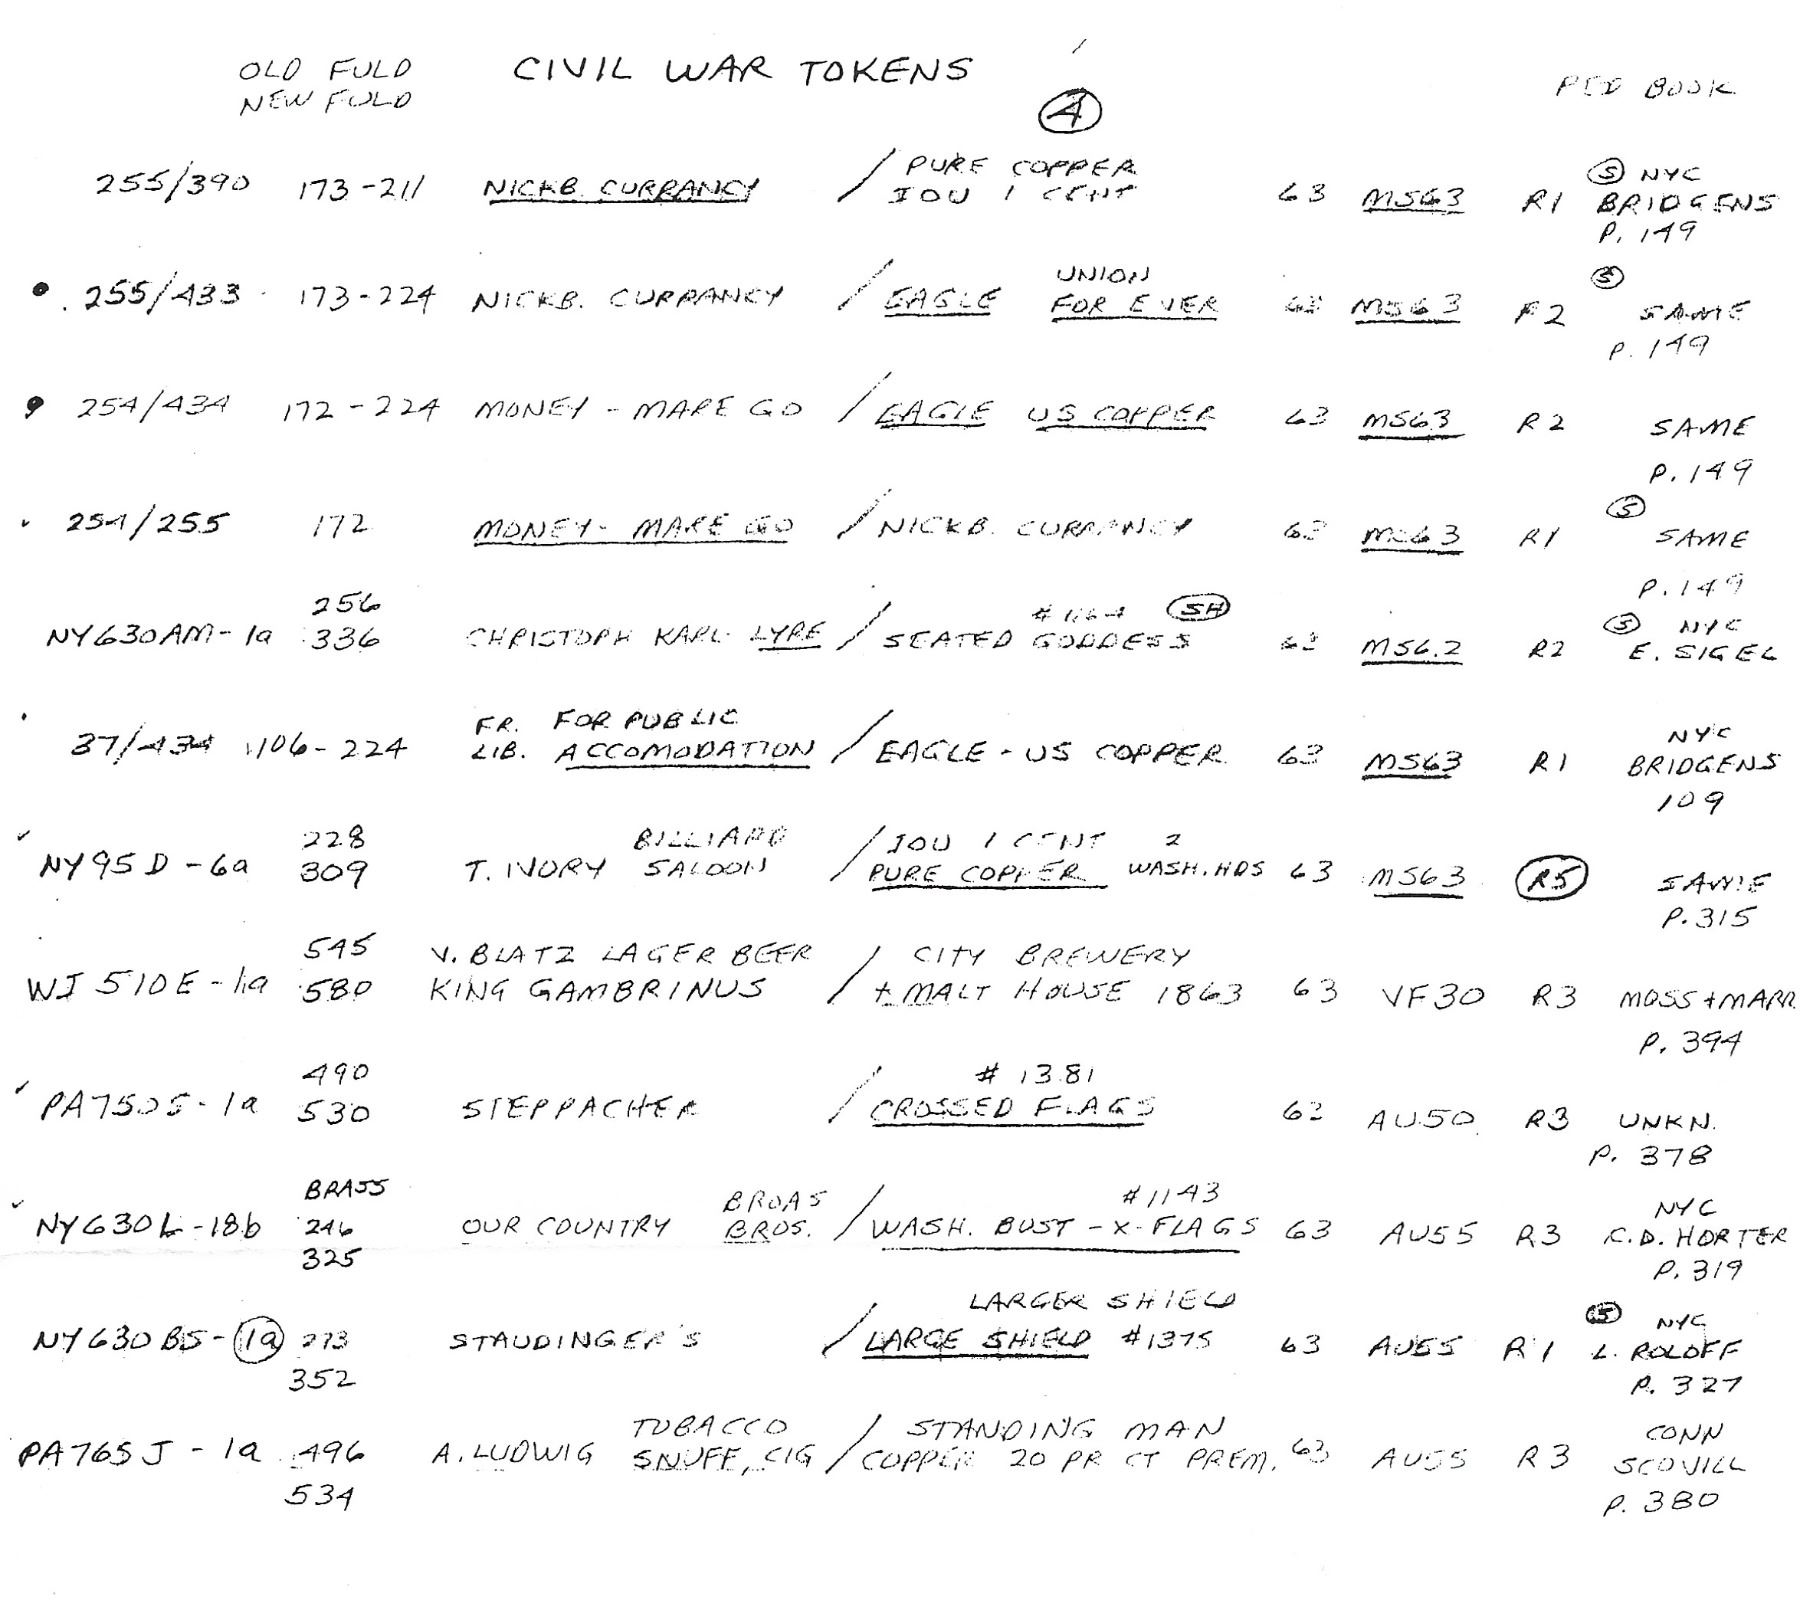 OLD FULD CIVIL WAR TOKENS RED BOOK
NEW FULD
4
255/390 173-211 NICKB. CURRANCY / PURE COPPER
IOU 1 CENT 63 MS63 R1 S NYC
BRIDGENS
P. 149
255/433 173-224 NICKB. CURRANCY / EAGLE UNION
FOR EVER 63 MS63 R2 S SAME
P. 149
254/434 172-224 MONEY - MARE GO / EAGLE US COPPER 63 MS63 R2 SAME
P. 149
254/255 172 MONEY - MARE GO / NICKB. CURRANCY 63 MS63 R1 S SAME
P. 149
NY630AM-1a 256
336 CHRISTOPH KARL LYRE / SEATED GODDESS SH 63 MS62 R2 S NYC
E. SIGEL
37/434 106-224 FR. FOR PUBLIC
LIB. ACCOMODATION / EAGLE - US COPPER 63 MS63 R1 NYC
BRIDGENS
109
NY95D-6a 228
309 T. IVORY BILLIARD
SALOON / IOU 1 CENT 2
PURE COPPER WASH. HDS 63 MS63 R5 SAME
P. 315
WI 510E-1a 545
580 V. BLATZ LAGER BEER
KING GAMBRINUS / CITY BREWERY
+ MALT HOUSE 1863 63 VF30 R3 MOSS + MARR
P. 394
PA750S-1a 490
530 STEPPACHER / # 1381
CROSSED FLAGS 63 AU50 R3 UNKN.
P. 378
NY630L-18b BRASS
246
325 OUR COUNTRY BROAS
BROS. / #1143
WASH. BUST - X-FLAGS 63 AU55 R3 NYC
C.D. HORTER
P. 319
NY630BS-1a 273
352 STAUDINGER'S / LARGER SHIELD
LARGE SHIELD #1375 63 AU55 R1 S NYC
L. ROLOFF
P. 327
PA765J-1a 496
534 A. LUDWIG TOBACCO
SNUFF, CIG / STANDING MAN
COPPER 20 PR CT PREM. 63 AU55 R3 CONN
SCOVILL
P. 380